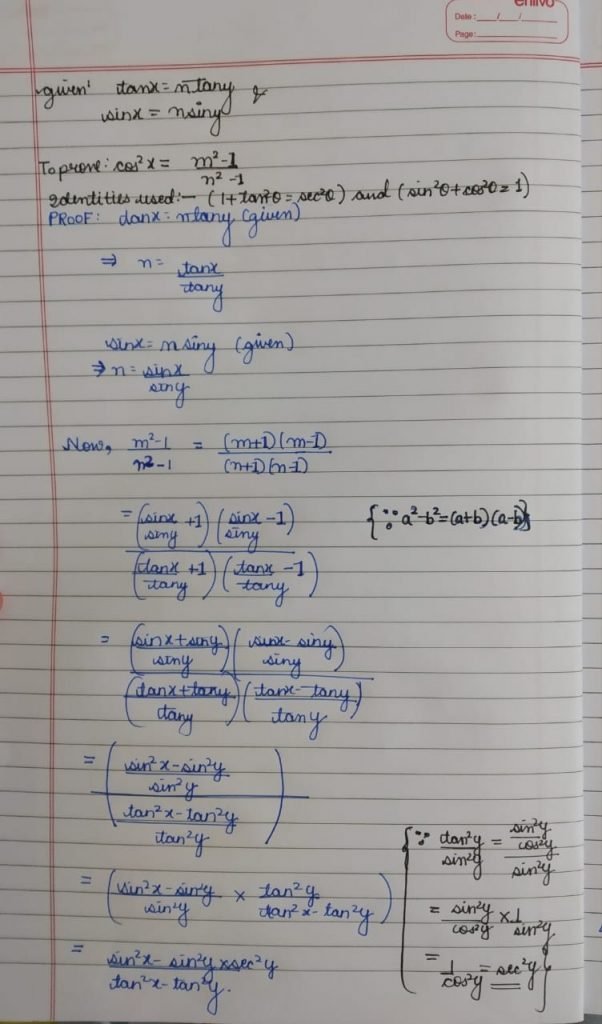 enlivo
Date: __/__/__
Page: ____
given' tanx = n tany &
sinx = n siny
To prove: cos²x = m²-1 / n²-1
Identities used:- (1+tan²θ = sec²θ) and (sin²θ+cos²θ = 1)
PROOF: tanx = n tany (given)
⇒ n = tanx / tany
sinx = n siny (given)
⇒ n = sinx / siny
Now, m²-1 / n²-1 = (m+1)(m-1) / (n+1)(n-1)
= (sinx/siny +1)(sinx/siny -1) / (tanx/tany +1)(tanx/tany -1) {∵ a²-b²=(a+b)(a-b)}
= (sinx+siny / siny)(sinx-siny / siny) / (tanx+tany / tany)(tanx-tany / tany)
= (sin²x-sin²y / sin²y) / (tan²x-tan²y / tan²y)
= (sin²x-sin²y / sin²y × tan²y / tan²x-tan²y)
= sin²x-sin²y × sec²y / tan²x-tan²y.
{∵ tan²y / sin²y = sin²y/cos²y / sin²y
= sin²y / cos²y × 1 / sin²y
= 1 / cos²y = sec²y}